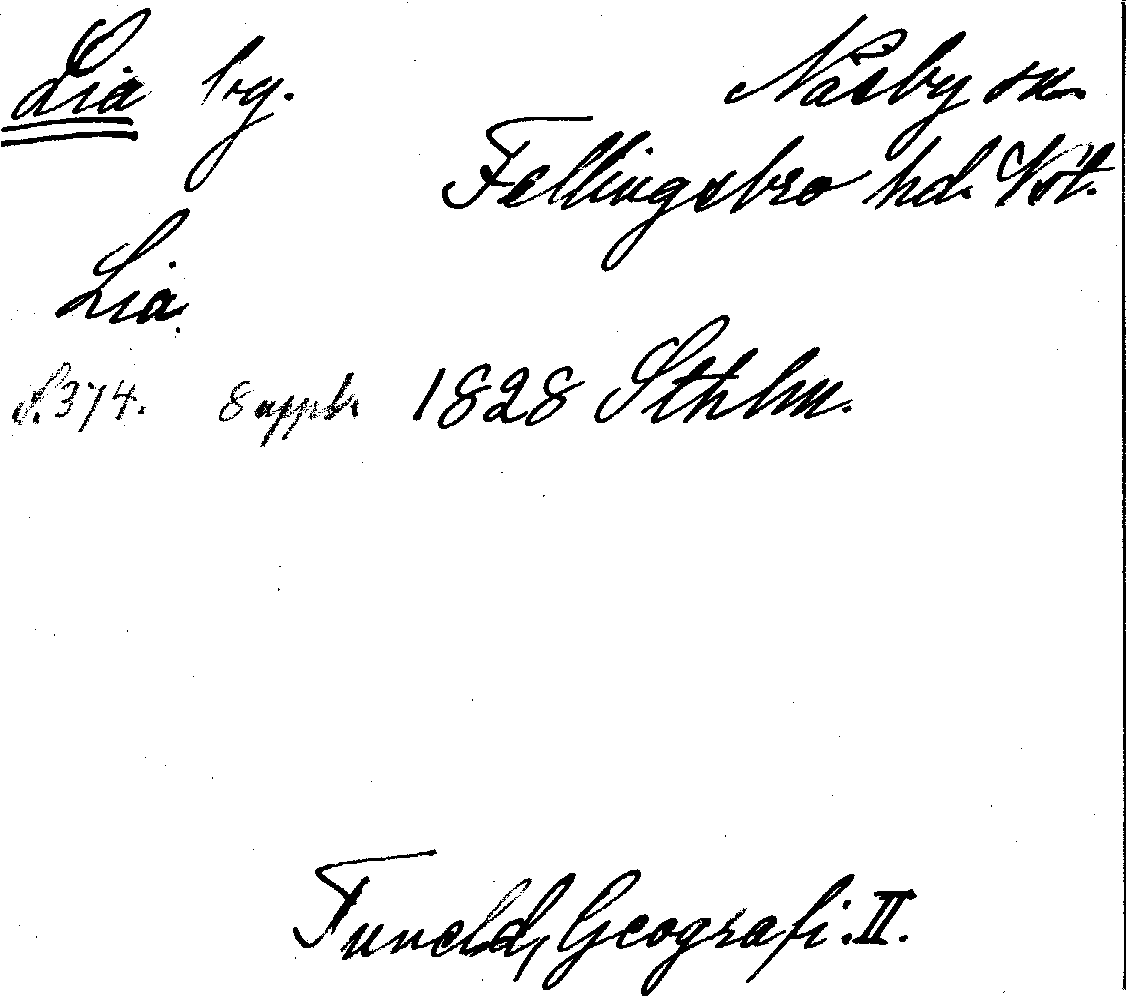 Lia bg.
Näsby sn.
Fellingsbro hd. Vst.
Lia.
S. 374. Suppl. 1828 Sthlm.
Tuneld, Geografi. II.